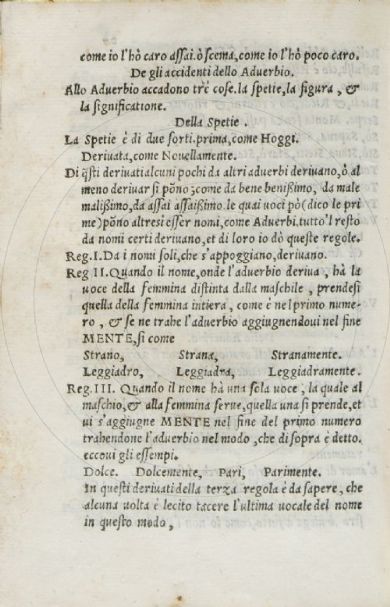 come io l'hò caro assai. ò scema, come io l'hò poco caro.
De gli accidenti dello Aduerbio.
Allo Aduerbio accadono trè cose. la spetie, la figura, &
la significatione.
Della Spetie.
La Spetie è di due sorti. prima, come Hoggi.
Deriuata, come Nouellamente.
Di q̃sti deriuati alcuni pochi da altri aduerbi deriuano, ò al
meno deriuar si põno; come da bene benißimo, da male
malißimo, da assai assaißimo. le quai uoci pò (dico le pri
me) põno altresi esser nomi, come Aduerbi. tutto'l resto
da nomi certi deriuano, et di loro io dò queste regole.
Reg. I. Da i nomi soli, che s'appoggiano, deriuano.
Reg II. Quando il nome, onde l'aduerbio deriua, hà la
uoce della femmina distinta dalla maschile, prendesi
quella della femmina intiera, come è nel primo nume-
ro, & se ne trahe l'aduerbio aggiugnendoui nel fine
MENTE, si come
Strano, Strana, Stranamente.
Leggiadro, Leggiadra, Leggiadramente.
Reg. III. Quando il nome hà una sola uoce, la quale al
maschio, & alla femmina serue, quella una si prende, et
ui s'aggiugne MENTE nel fine del primo numero
trahendone l'aduerbio nel modo, che di sopra è detto.
eccoui gli essempi.
Dolce. Dolcemente, Pari, Parimente.
In questi deriuati della terza regola è da sapere, che
alcuna uolta è lecito tacere l'ultima uocale del nome
in questo modo,